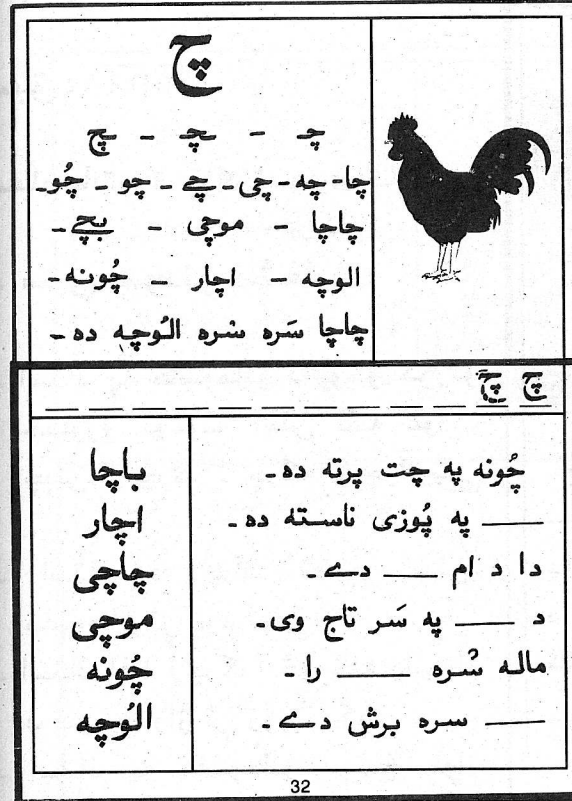 چ
چـ - ـچـ - ـچ
چا - چه - چی - چے - چو - چُو-
چاچا - موچی - بچے-
الوچه - اچار - چُونه-
چاچا سَره سْره الُوچه ده -
چ چ
چُونه په چت پرته ده-
____ په پُوزی ناسته ده-
دا د ام ____ دے-
د ____ په سَر تاج وی-
ماله سْره ____ را-
____ سره برش دے-
باچا
اچار
چاچی
موچی
چُونه
الُوچه
32